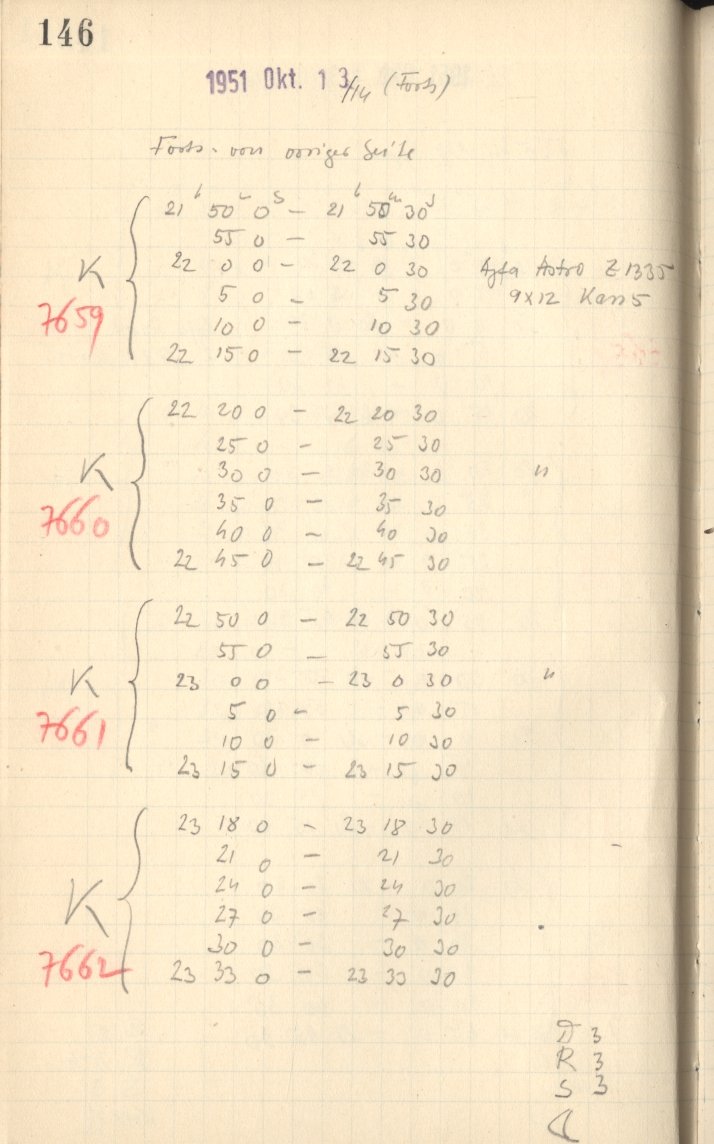 146
1951 Okt. 13/14 (Forts)
Forts. von voriger Seite
21h 50m 0s – 21h 50m 30s
55 0 – 55 30
K 22 0 0 – 22 0 30 Agfa Astro Z 1335
5 0 – 5 30 9x12 Kass 5
7659 10 0 – 10 30
22 15 0 – 22 15 30
22 20 0 – 22 20 30
25 0 – 25 30
K 30 0 – 30 30 "
7660 35 0 – 35 30
40 0 – 40 30
22 45 0 – 22 45 30
22 50 0 – 22 50 30
55 0 – 55 30
K 23 0 0 – 23 0 30 "
7661 5 0 – 5 30
10 0 – 10 30
23 15 0 – 23 15 30
23 18 0 – 23 18 30
21 0 – 21 30
24 0 – 24 30
K 27 0 – 27 30
30 0 – 30 30
7662 23 33 0 – 23 33 30
D 3
R 3
S 3